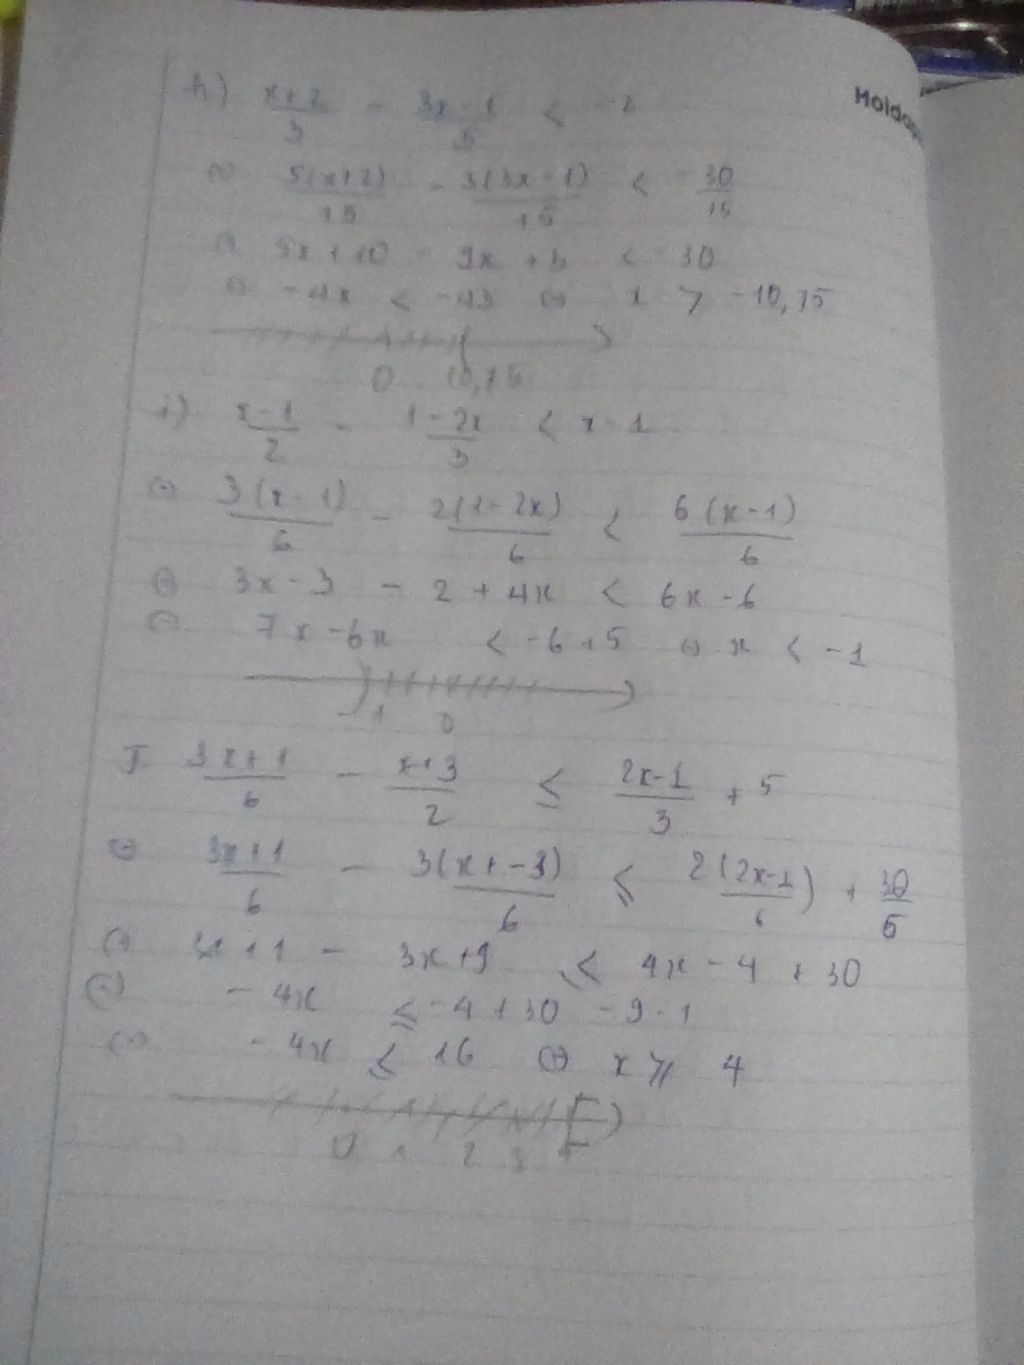 Moldap
h) x+2/3 - 3x-1/5 < -2
⇔ 5(x+2)/15 - 3(3x-1)/15 < -30/15
⇔ 5x + 10 - 9x + 3 < -30
⇔ -4x < -43 ⇔ x > -10,75
0 10,75
i) x-1/2 - 1-2x/3 < x-1
⇔ 3(x-1)/6 - 2(1-2x)/6 < 6(x-1)/6
⇔ 3x-3 - 2+4x < 6x-6
⇔ 7x-6x < -6+5 ⇔ x < -1
-1 0
I 3x+1/6 - x+3/2 ≤ 2x-1/3 + 5
⇔ 3x+1/6 - 3(x+-3)/6 ≤ 2(2x-1)/6 + 30/6
⇔ 3x+1 - 3x+9 ≤ 4x-4+30
⇔ -4x ≤ -4+30-9-1
⇔ -4x ≤ 16 ⇔ x ⩾ 4
0 1 2 3